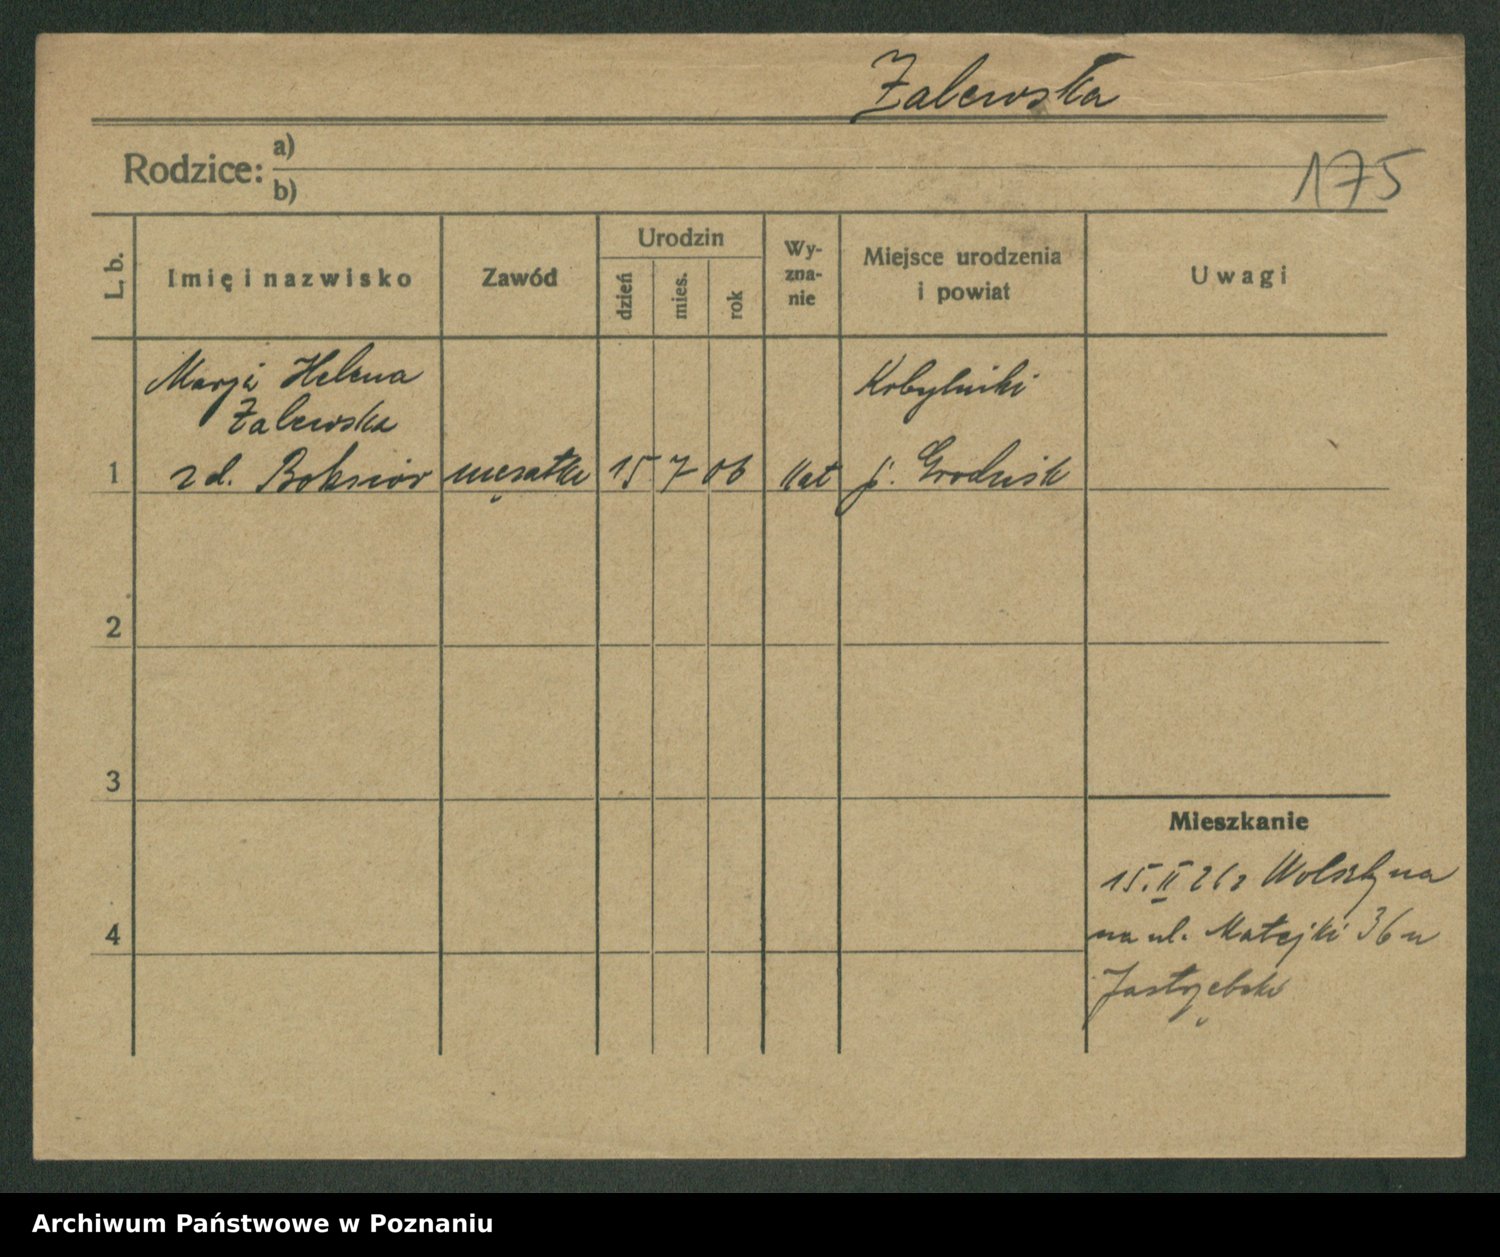 Zalewska
Rodzice: a)
b)
175
L. b.
Imię i nazwisko
Zawód
Urodzin
dzień
mies.
rok
Wy-
zna-
nie
Miejsce urodzenia
i powiat
Uwagi
Marja Helena
Zalewska
1 zd. Boksiór mężatka 15 7 06 kat
Kobylniki
p. Grodzisk
2
3
4
Mieszkanie
15.II 26 z Wolsztyna
na ul. Matejki 36 u
Jastrzębski
Archiwum Państwowe w Poznaniu